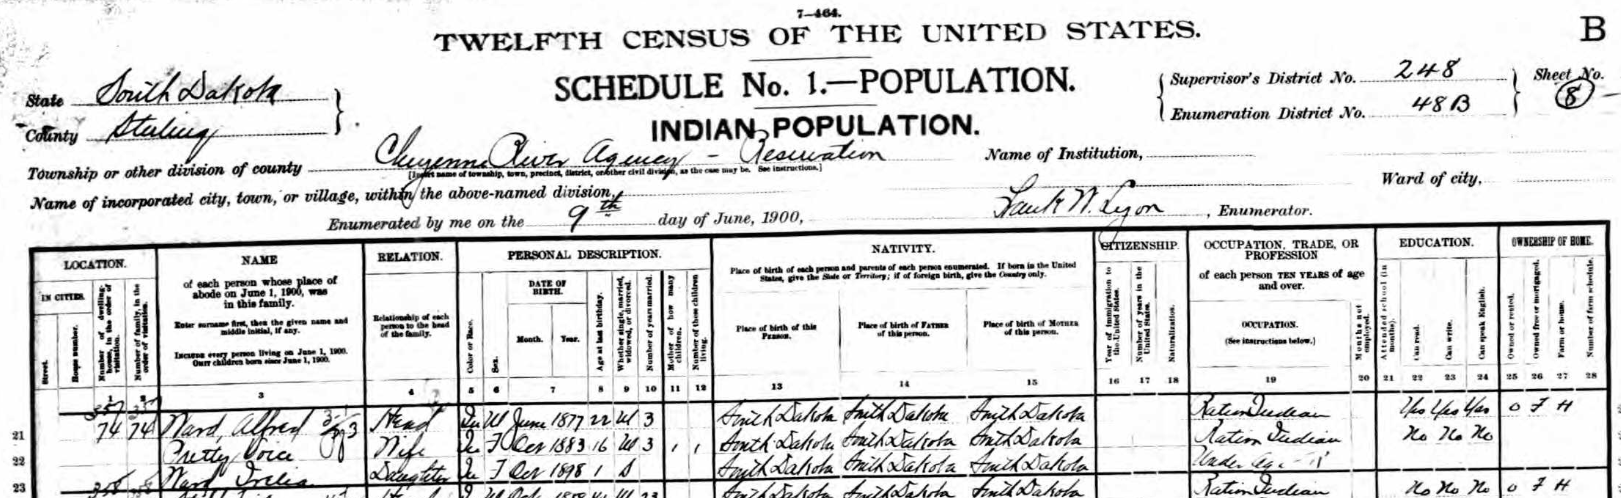 7—464.
TWELFTH CENSUS OF THE UNITED STATES.
B
SCHEDULE No. 1.—POPULATION.
INDIAN POPULATION.
State South Dakota
County Sterling
Supervisor's District No. 248
Enumeration District No. 48B
Sheet No.
8
Township or other division of county Cheyenne River Agency - Reservation
[Insert name of township, town, precinct, district, or other civil division, as the case may be. See instructions.]
Name of Institution,
Name of incorporated city, town, or village, within the above-named division,
Ward of city,
Enumerated by me on the 9th day of June, 1900, Frank W. Lyon, Enumerator.
LOCATION.
IN CITIES.
Street.
House number.
Number of dwelling-house, in the order of visitation.
Number of family, in the order of visitation.
NAME
of each person whose place of
abode on June 1, 1900, was
in this family.
Enter surname first, then the given name and
middle initial, if any.
INCLUDE every person living on June 1, 1900.
OMIT children born since June 1, 1900.
RELATION.
Relationship of each
person to the head
of the family.
PERSONAL DESCRIPTION.
Color or Race.
Sex.
DATE OF
BIRTH.
Month.
Year.
Age at last birthday.
Whether single, married, widowed, or divorced.
Number of years married.
Mother of how many children.
Number of these children living.
NATIVITY.
Place of birth of each person and parents of each person enumerated. If born in the United
States, give the State or Territory; if of foreign birth, give the Country only.
Place of birth of this
PERSON.
Place of birth of FATHER
of this person.
Place of birth of MOTHER
of this person.
CITIZENSHIP.
Year of immigration to the United States.
Number of years in the United States.
Naturalization.
OCCUPATION, TRADE, OR
PROFESSION
of each person TEN YEARS of age
and over.
OCCUPATION.
(See instructions below.)
Months not employed.
EDUCATION.
Attended school (in months).
Can read.
Can write.
Can speak English.
OWNERSHIP OF HOME.
Owned or rented.
Owned free or mortgaged.
Farm or house.
Number of farm schedule.
1 2 3 4 5 6 7 8 9 10 11 12 13 14 15 16 17 18 19 20 21 22 23 24 25 26 27 28
357 357
21 74 74 Ward, Alfred Head In M June 1877 22 M 3 South Dakota South Dakota South Dakota Ration Indian Yes Yes Yes O F H
22 Pretty Voice Wife In F Oct 1883 16 M 3 1 1 South Dakota South Dakota South Dakota Ration Indian No No No
23 Ward Daughter In F Oct 1898 1 S South Dakota South Dakota South Dakota Under Age
358 South Dakota South Dakota South Dakota Ration Indian No No No O F H